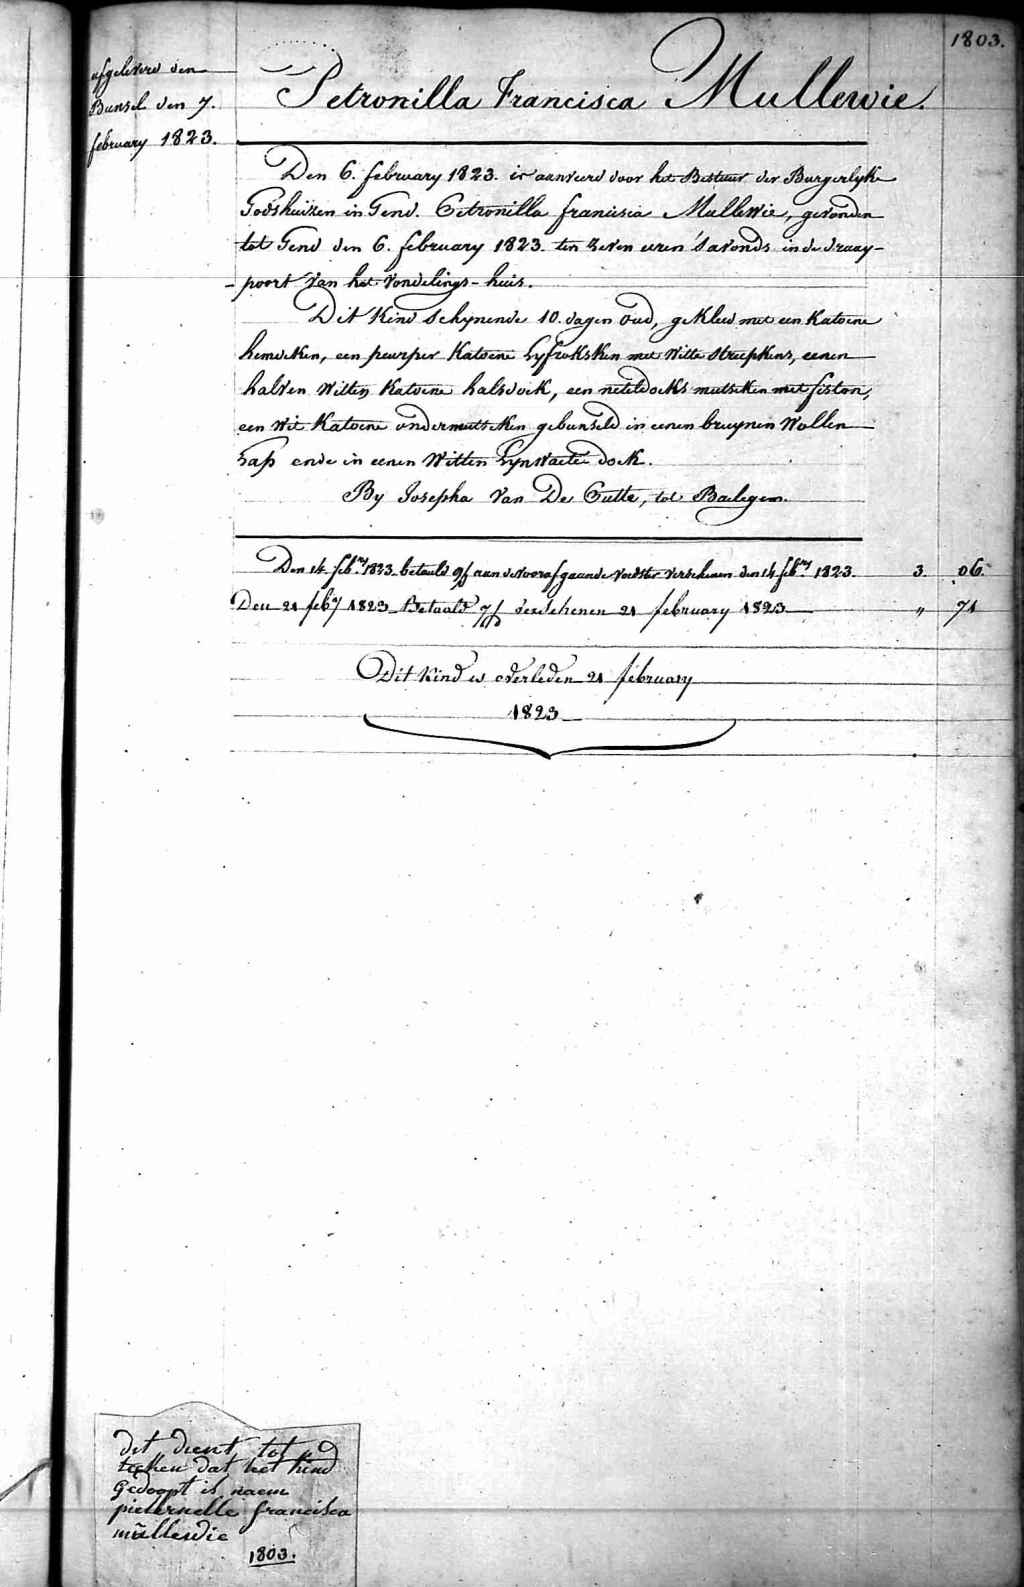 1803.
afgeleverd den
Bunsel den 7.
february 1823.
Petronilla Francisca Mullewie.
Den 6. february 1823. is aanveerd door het Bestuur der Burgerlyke
Godshuizen in Gend. Petronilla francisca Mullewie, gevonden
tot Gend den 6. february 1823. ten zeven uren 'savonds in de draay-
poort van het vondelings-huis.
Dit Kind schynende 10. dagen oud, gekleed met een Katoene
hemdeken, een peurper Katoene Lyfroksken met Witte streepkens, eenen
halven Witten Katoene halsdoek, een neteldoeks mutseken met fiston,
een Wit Katoene ondermutseken gebunseld in eenen bruynen Wollen
Lap ende in eenen Witten Lynwaete doek.
By Josepha Van De Putte, tot Baelegem.
Den 14 feb.ry 1823. betaald gf aan de voorafgaande voedster verschenen den 14 feb.ry 1823. 3. 06.
Den 21 feby 1823 Betaald verschenen 21 february 1823 " 71
Dit Kind is overleden 21 february
1823
dit dient tot
teeken dat het kind
gedoopt is naem
pieternelle francisca
mullewie
1803.